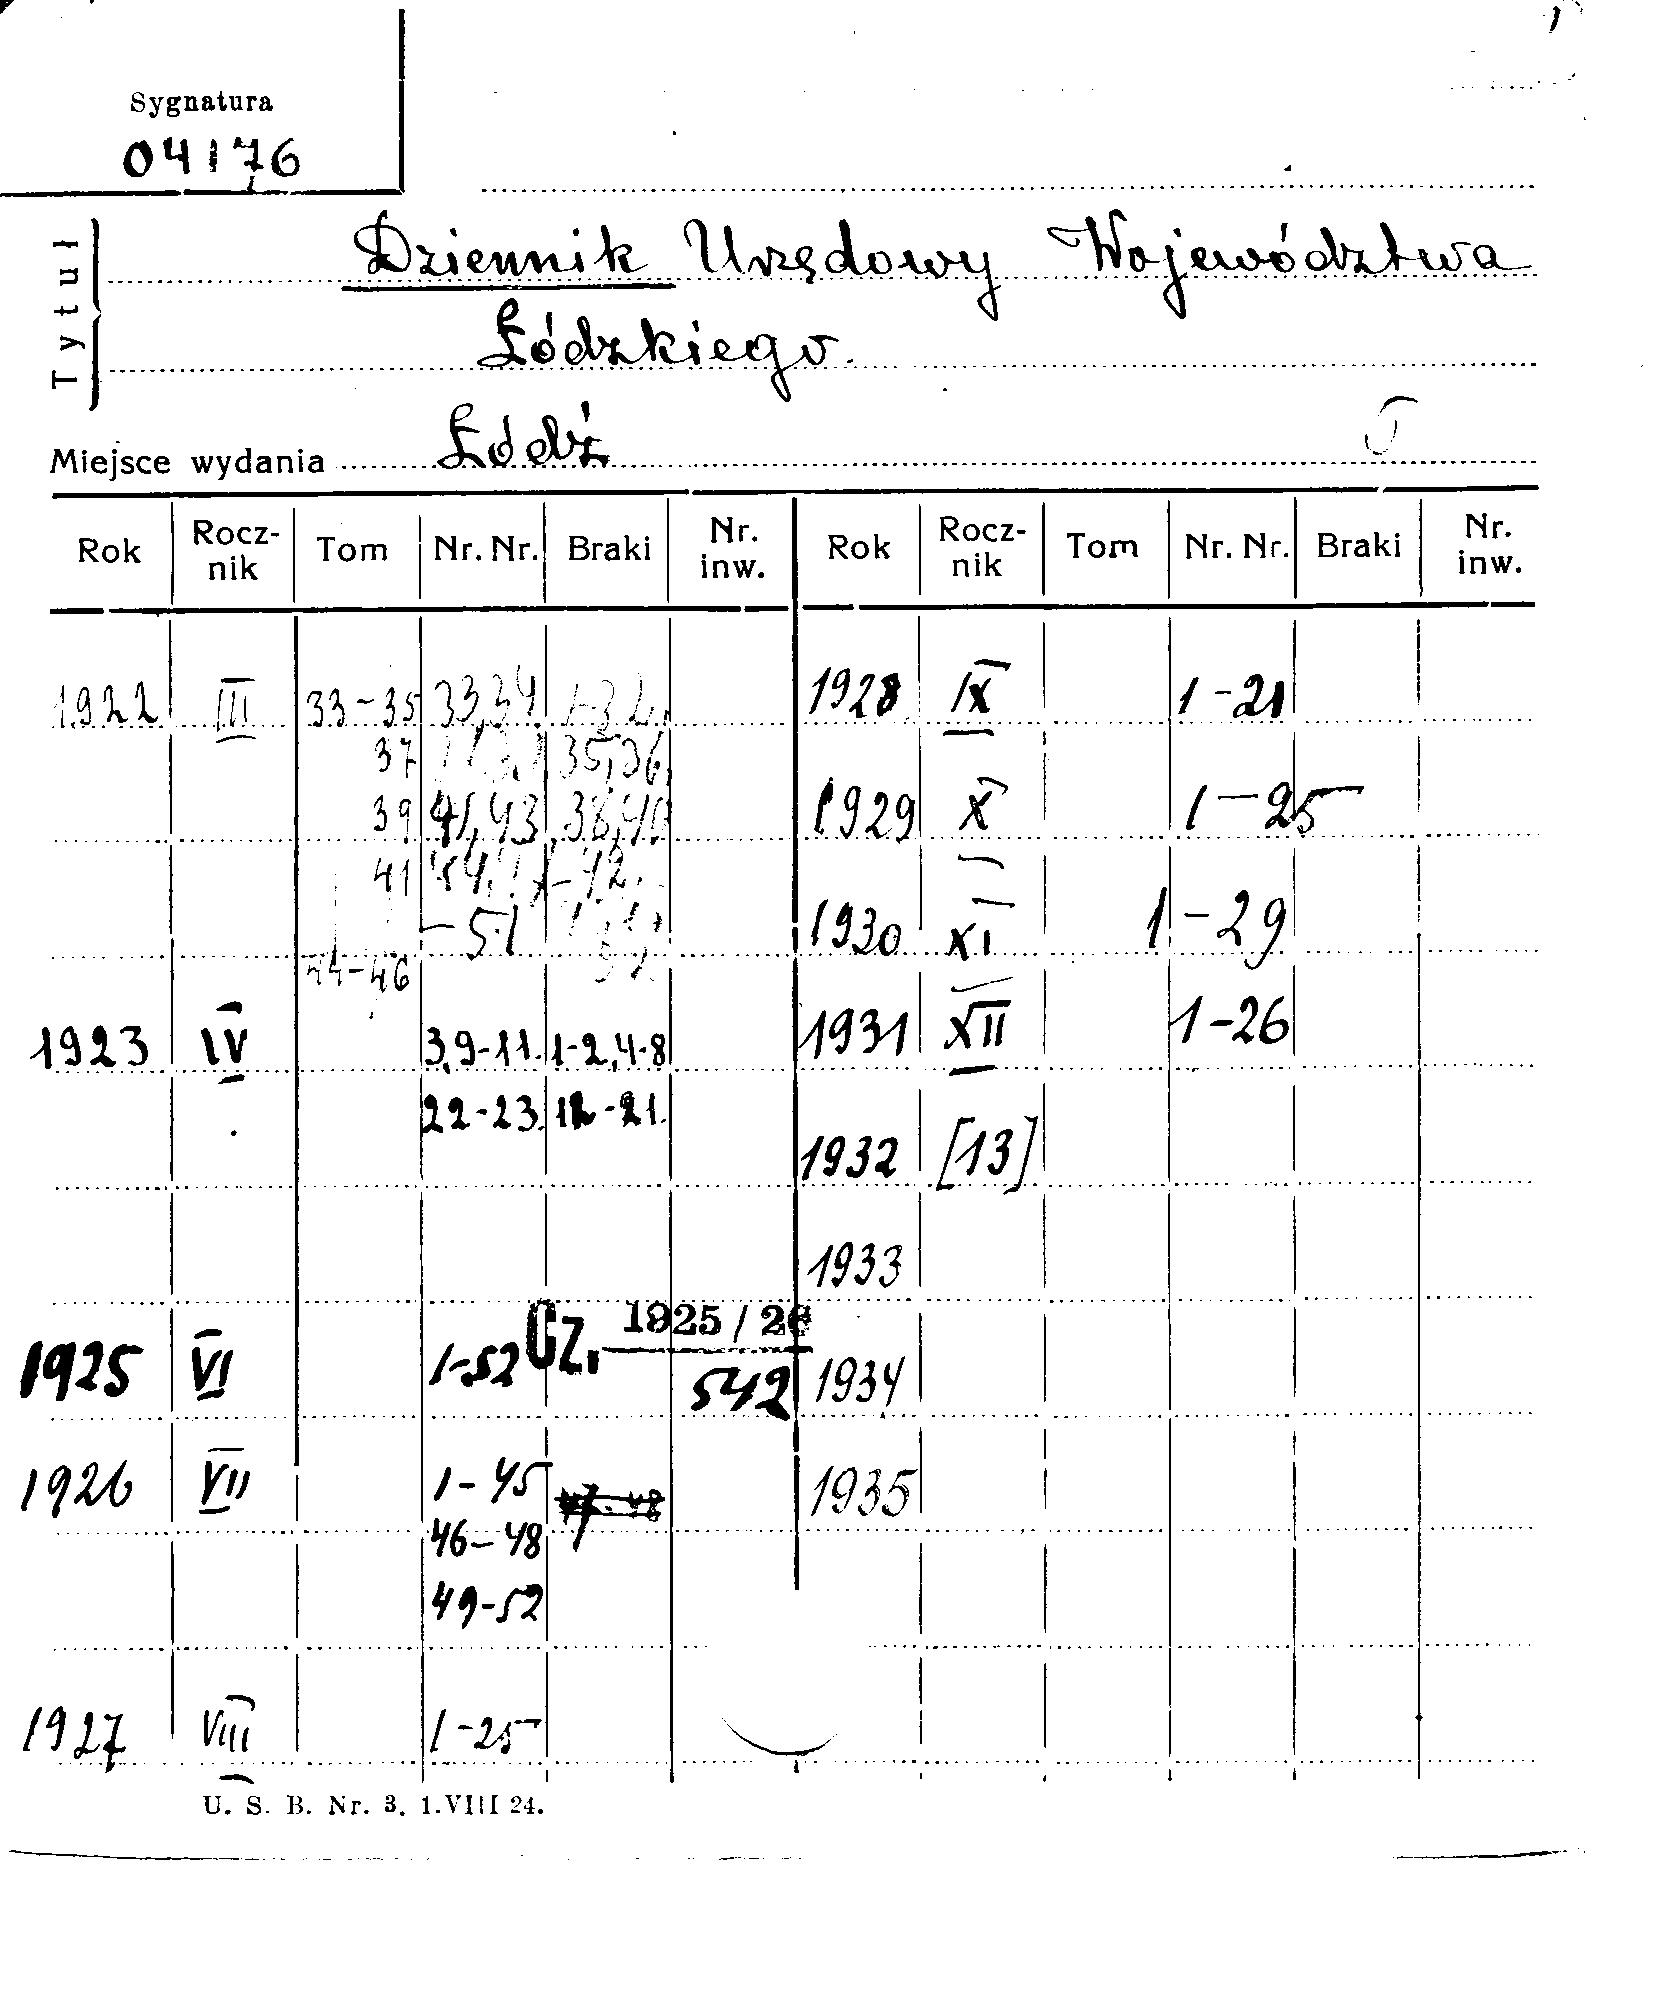 Sygnatura
04176
Tytuł
Dziennik Urzędowy Województwa
Łódzkiego.
Miejsce wydania Łódź
Rok Rocz-nik Tom Nr. Nr. Braki Nr. inw. Rok Rocz-nik Tom Nr. Nr. Braki Nr. inw.
1922 III 33-35 33,34 1-32, 1928 IX 1-21
37 35,36
39 41,43 38,40 1929 X 1-25
41 -42
-51 1930 XI 1-29
44-46
1923 IV 3,9-11. 1-2,4-8 1931 XII 1-26
22-23. 12-21. 1932 [13]
1933
Cz. 1925/26
1925 VI 1-52 542 1934
1926 VII 1-45 1935
46-48
49-52
1927 VIII 1-25
U. S. B. Nr. 3. 1.VIII 24.